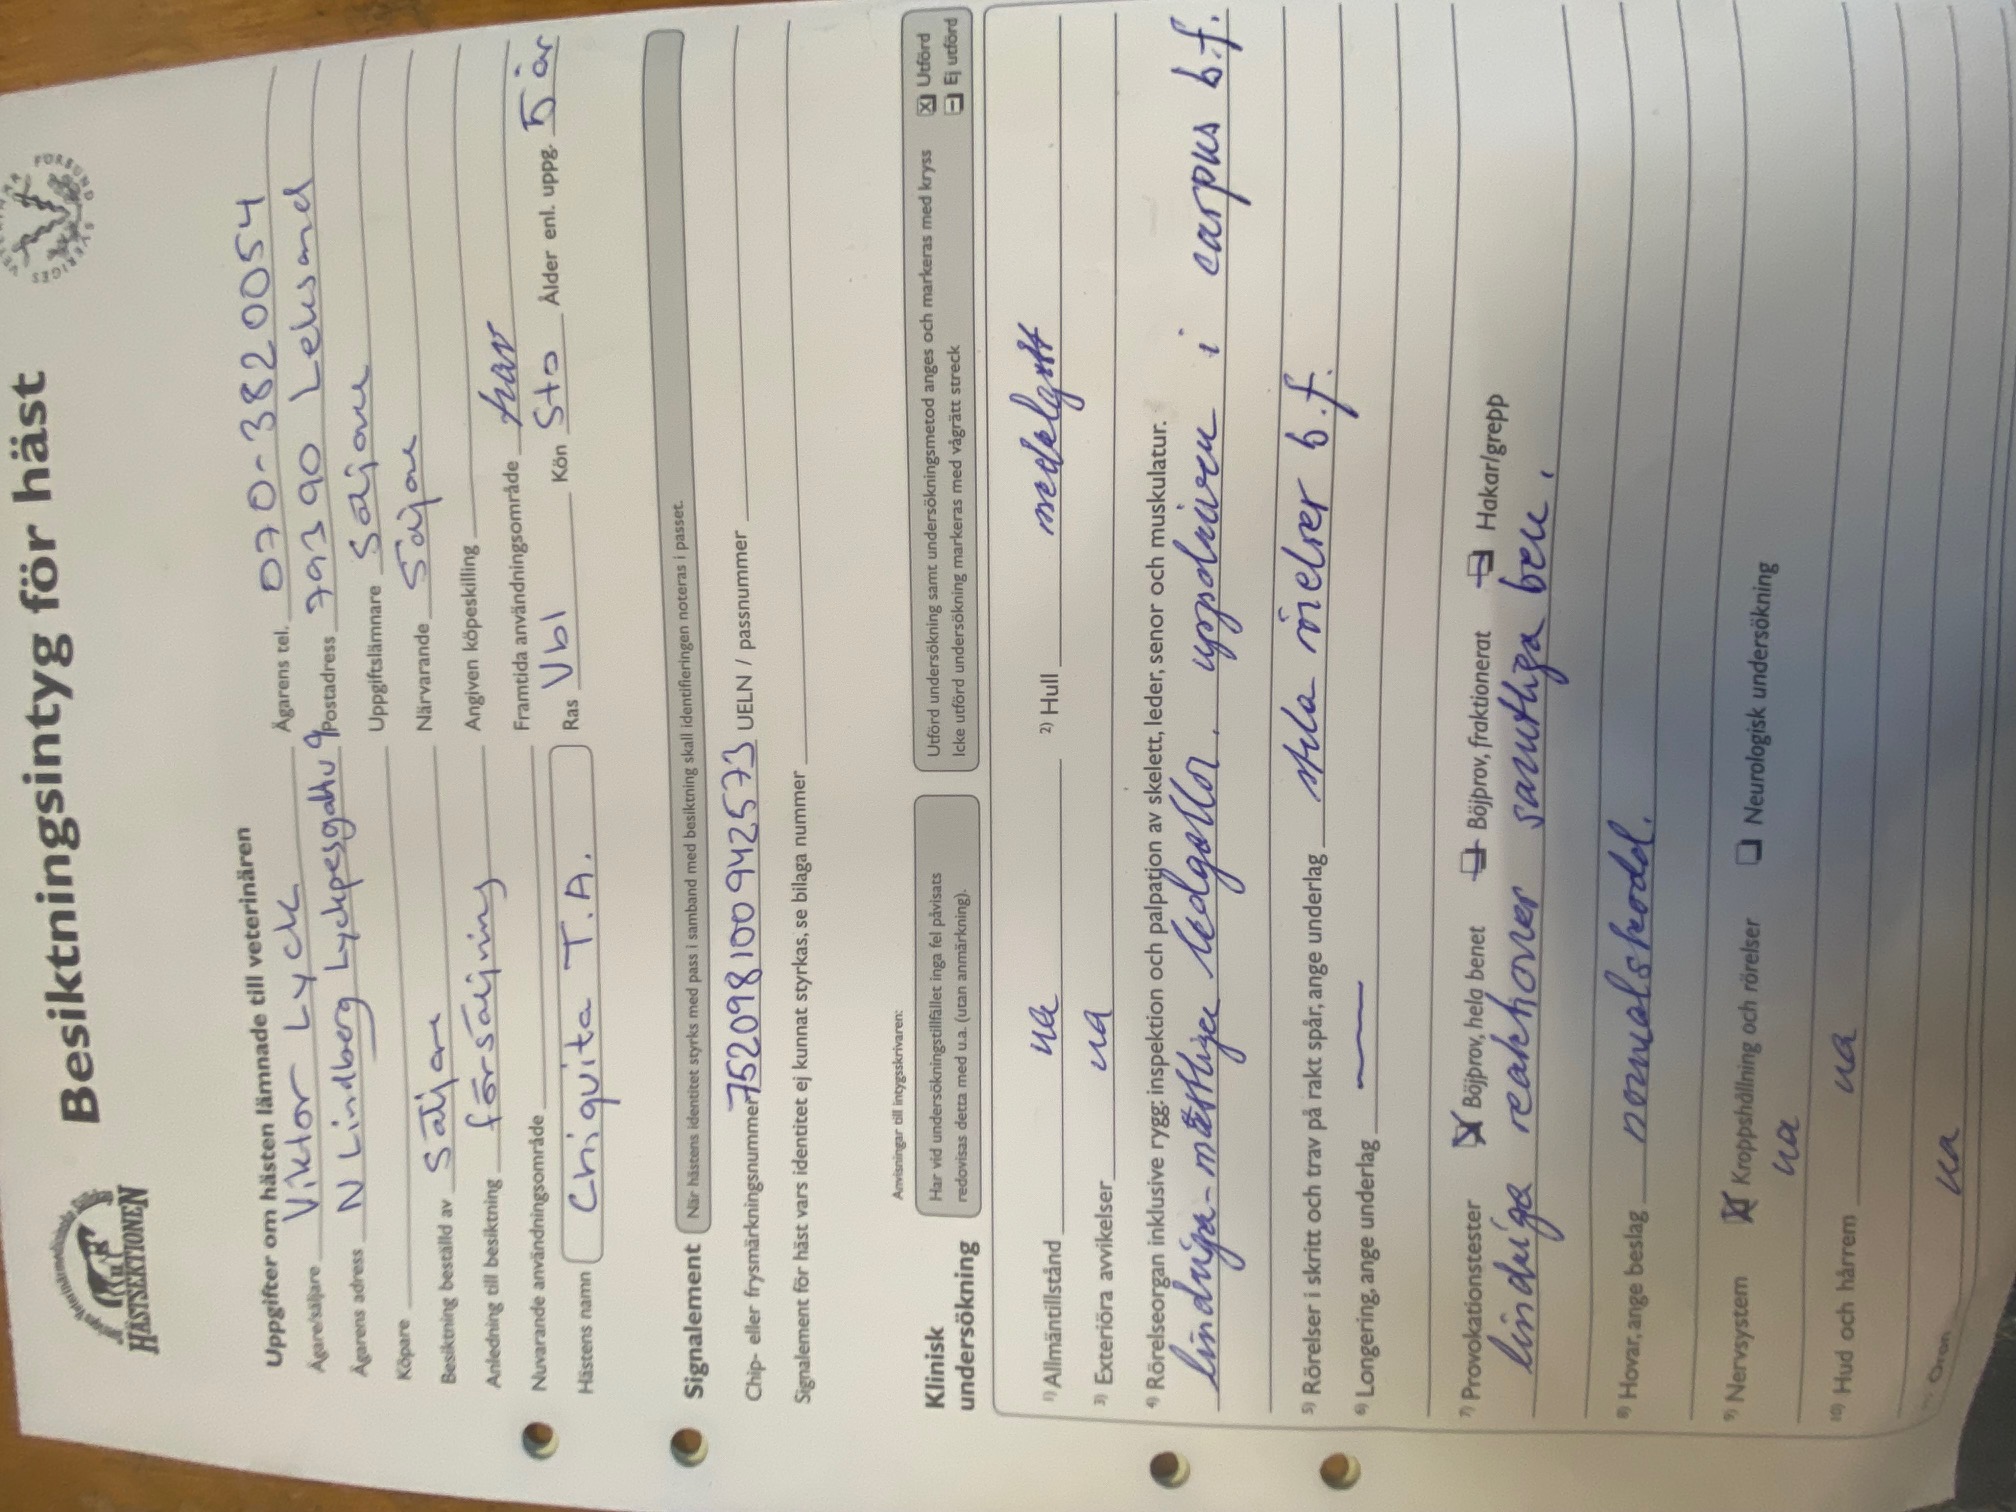 HÄSTSEKTIONEN
Besiktningsintyg för häst
SVERIGES VETERINÄRFÖRBUND
Uppgifter om hästen lämnade till veterinären
Ägare/säljare Viktor Lyck Ägarens tel. 070-3820054
Ägarens adress N Lindberg Lyckpesgattu 9 Postadress 79390 Leksand
Köpare Uppgiftslämnare Säljare
Besiktning beställd av Säljare Närvarande Säljare
Anledning till besiktning försäljning Angiven köpeskilling
Nuvarande användningsområde Framtida användningsområde trav
Hästens namn Chiquita T.A. Ras Vbl Kön Sto Ålder enl. uppg. 5 år
Signalement När hästens identitet styrks med pass i samband med besiktning skall identifieringen noteras i passet.
Chip- eller frysmärkningsnummer 752098100942573 UELN / passnummer
Signalement för häst vars identitet ej kunnat styrkas, se bilaga nummer
Anvisningar till intygsskrivaren:
Klinisk undersökning
Har vid undersökningstillfället inga fel påvisats
redovisas detta med u.a. (utan anmärkning).
Utförd undersökning samt undersökningsmetod anges och markeras med kryss
Icke utförd undersökning markeras med vågrätt streck
Utförd
Ej utförd
1) Allmäntillstånd ua 2) Hull medelgott
3) Exteriöra avvikelser ua
4) Rörelseorgan inklusive rygg: inspektion och palpation av skelett, leder, senor och muskulatur.
lindriga-måttliga ledgallor. uppdriven i carpus b.f.
5) Rörelser i skritt och trav på rakt spår, ange underlag stela rörelser b.f.
6) Longering, ange underlag —
7) Provokationstester Böjprov, hela benet Böjprov, fraktionerat Hakar/grepp
lindriga reaktioner samtliga ben.
8) Hovar, ange beslag normalskodd.
9) Nervsystem Kroppshållning och rörelser Neurologisk undersökning
ua
10) Hud och hårrem ua
Öron ua